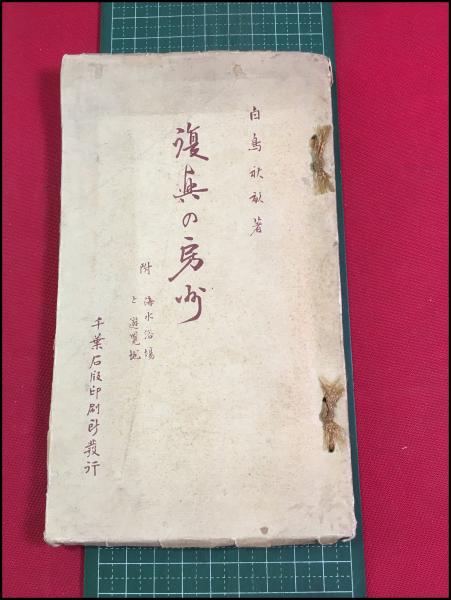 白鳥秋歌著
復興の房州
附 海水浴場
と遊覧地
千葉石版印刷所發行